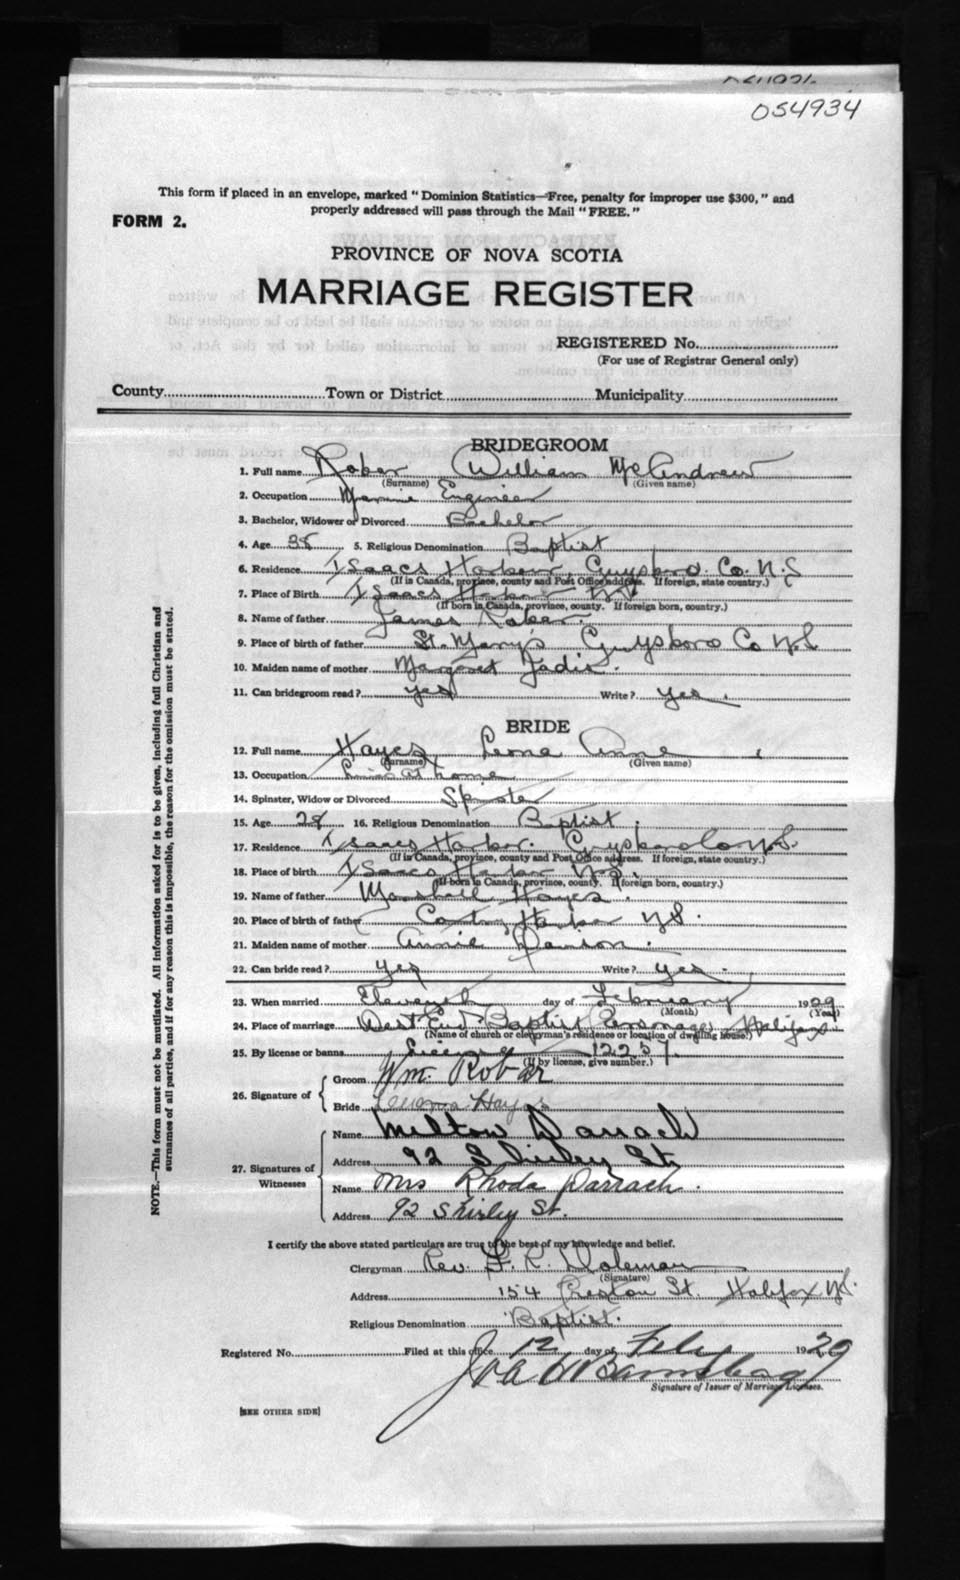 054934
This form if placed in an envelope, marked "Dominion Statistics—Free, penalty for improper use $300," and
properly addressed will pass through the Mail "FREE."
FORM 2.
PROVINCE OF NOVA SCOTIA
MARRIAGE REGISTER
REGISTERED No.
(For use of Registrar General only)
County Town or District Municipality
BRIDEGROOM
1. Full name Rober William McAndrew
(Surname) (Given name)
2. Occupation Marine Engineer
3. Bachelor, Widower or Divorced Bachelor
4. Age 38 5. Religious Denomination Baptist
6. Residence Isaacs Harbour, Guysboro. Co. N.S
(If in Canada, province, county and Post Office address. If foreign, state country.)
7. Place of Birth Isaacs Harbor N.S
(If born in Canada, province, county. If foreign born, country.)
8. Name of father James Rober.
9. Place of birth of father St. Mary's Guysboro Co N.S
10. Maiden name of mother Margaret
11. Can bridegroom read? yes Write? yes.
BRIDE
12. Full name Hayes Leona Anne
(Surname) (Given name)
13. Occupation Lives at home
14. Spinster, Widow or Divorced Spinster
15. Age 28 16. Religious Denomination Baptist.
17. Residence Isaacs Harbor. Guysboro Co N.S.
(If in Canada, province, county and Post Office address. If foreign, state country.)
18. Place of birth Isaacs Harbor N.S.
(If born in Canada, province, county. If foreign born, country.)
19. Name of father Marshall Hayes.
20. Place of birth of father Harbor N.S.
21. Maiden name of mother Annie Dawson.
22. Can bride read? yes Write? yes.
23. When married Eleventh day of February 1929
(Month) (Year)
24. Place of marriage West End Baptist Parsonage, Halifax
(Name of church or clergyman's residence or location of dwelling house.)
25. By license or banns License 12257.
(If by license, give number.)
26. Signature of Groom Wm Robar
Bride Leuona Hayes
27. Signatures of Witnesses Name Milton Darrach
Address 92 Shirley St
Name Mrs Rhoda Darrach.
Address 92 Shirley St.
I certify the above stated particulars are true to the best of my knowledge and belief.
Clergyman Rev. F. R. Doleman
(Signature)
Address 154 Preston St. Halifax N.S.
Religious Denomination Baptist.
Registered No. Filed at this office 12 day of Feby 1929
Signature of Issuer of Marriage Licenses.
[SEE OTHER SIDE]
NOTE.—This form must not be mutilated. All information asked for is to be given, including full Christian and
surnames of all parties, and if for any reason this is impossible, the reason for the omission must be stated.